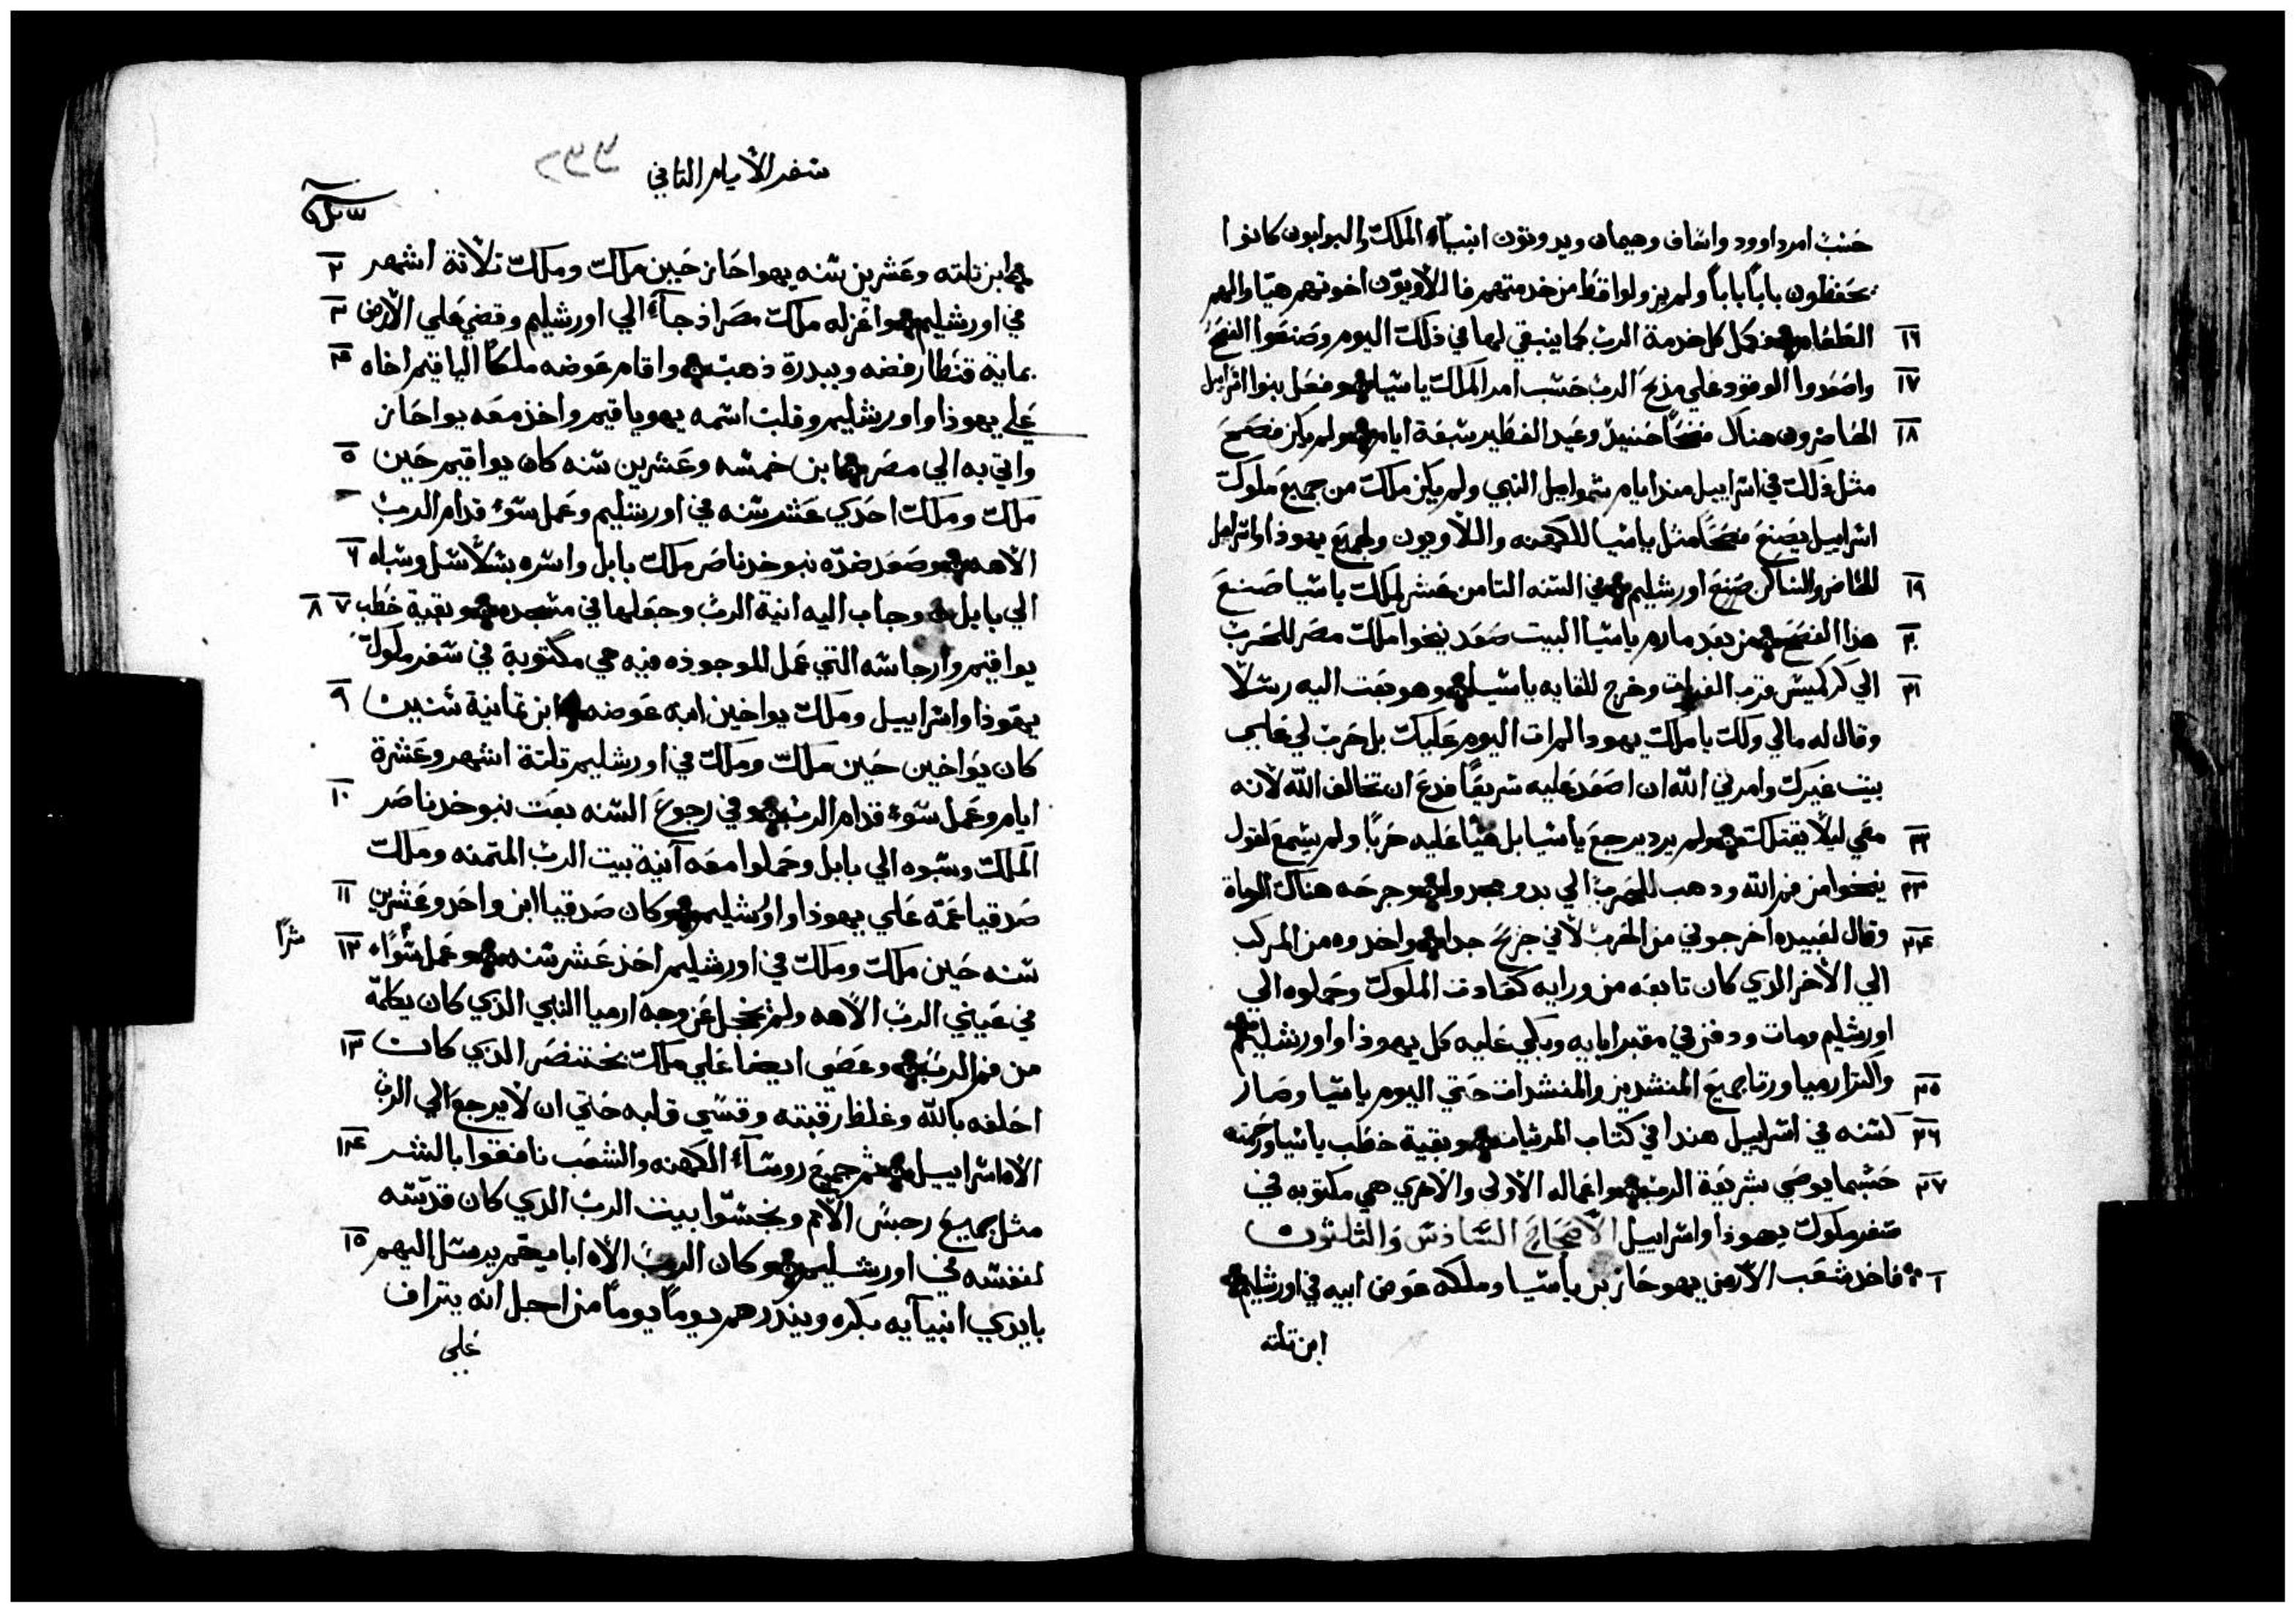 حسب امر داوود واساف وهيمان ويدوتون انبيآء الملك والبوابون كانوا
يحفظون باباً باباً ولم يزولوا قط من خدمتهم فاللاويون اخوتهم هيّاوا لهم
١٦ الطعام وكمل كل خدمة الرب كما ينبغي لها في ذلك اليوم وصنعوا الفصح
١٧ واصعدوا الوقود علي مذبح الرب حسب امر الملك ياشيا وفعل بنوا اسراييل
١٨ الحاضرون هناك فصحًا حنيذ وعيد الفطير سبعة ايام ولم يكن فصح
مثل ذلك في اسراييل منذ ايام شمواييل النبي ولم يكن ملك من جميع ملوك
اسراييل يصنع فصحًا مثل ياشيا للكهنه واللاويون ولجميع يهوذا واسراييل
١٩ الحاضر والساكن صنع اورشليم في السنه الثامن عشر لملك ياشيا صنع
٢٠ هذا الفصح من بعد مارم ياشيا البيت صعد نيخوا ملك مصر للحرب
٢١ الي كركميش قرب الفرات وخرج للقايه ياشيا وهو بعت اليه رسلًا
وقال له مالي ولك يا ملك يهودا لم ات اليوم عليك بل حرب لي علي
بيت غيرك وامرني الله ان اصعد عليه سريعًا فدع ان تخالف الله لانه
٢٢ معي ليلًا يقتلك ولم يرد يرجع ياشيا بل هيّا عليه حربًا ولم يسمع لقول
٢٣ نيخوا من فم الله ودهب للحرب الي بدو مجدوا وجرحه هناك الرماة
٢٤ وقال لعبيده اخرجوني من الحرب لاني جريح جدا واخدوه من المركب
الي الاخر الدي كان تابعه من ورايه كعادت الملوك وحملوه الي
اورشليم ومات ودفن في مقبر ابايه وبكي عليه كل يهوذا واورشليم
٢٥ واكتر ارميا ورتا جميع المنشدين والمنشدات حتي اليوم ياشيا وصار
٢٦ كسنه في اسراييل هندا في كتاب المرثيات وبقية خطب ياشيا ورحمته
٢٧ حسبما يوصي بشريعة الرب واعماله الاولى والاخري هي مكتوبه في
سفر ملوك يهوذا واسراييل الاصحاح السادس والثلثون
١ فاخد شعب الارض يهوحاز بن ياشيا وملكه عوض ابيه في اورشليم
ابن تلته
سفر الأيام التاني
٢ ابن تلته وعشرين سنه يهواحاز حين ملك وملك تلاتة اشهر
٣ في اورشليم واعزله ملك مصر اذ جآء الي اورشليم وقضي علي الارض
٤ بماية قنطار فضه وببدرة ذهب واقام عوضه ملكًا الياقيم اخاه
علي يهوذا واورشليم وقلب اسمه يهوياقيم واخذ معه يواحاز
٥ واتي به الي مصر ابن خمسه وعشرين سنه كان يواقيم حين
ملك وملك احدي عشر سنه في اورشليم وعمل سوء قدام الرب
٦ الاهه وصعد ضدّه نبوخدناصر ملك بابل واسره بسلاسل وسباه
٧ ٨ الي بابل وجاب اليه انية الرب وجعلها في مسجده وبقية خطب
يواقيم وارجاسه التي عمل الموجوذه فيه هي مكتوبة في سفر ملوك
٩ يهوذا واسراييل وملك يواخين ابنه عوضه ابن تمانية سنين
كان يواخين حين ملك وملك في اورشليم تلتة اشهر وعشرة
١٠ ايام وعمل سوء قدام الرب وفي رجوع السنه بعت نبوخدناصر
الملك وسبوه الي بابل وحملوا معه آنية بيت الرب المتمنه وملك
١١ صدقيا عمّه علي يهوذا واورشليم وكان صدقيا ابن واحد وعشرين
١٢ سنه حين ملك وملك في اورشليم احد عشر سنه وعمل سُواء شرًا
في عيني الرب الاهه ولم يخجل عن وجه ارميا النبي الذي كان يكلمه
١٣ من فم الرب وعصي ايضا علي ملك بختنصر الدي كان
احلفه بالله وغلظ رقبته وقسّي قلبه حتي ان لا يرجع الي الرب
١٤ الاه اسراييل ثم جميع روسآء الكهنه والشعب نافقوا بالشر
مثل جميع رجس الامم ونجسّوا بيت الرب الدي كان قدّسه
١٥ لنفسه في اورشليم وكان الرب الاه اباييهم يرسل اليهم
بايدي انبيآيه بكره وينذرهم يومًا يومًا من اجل انه يتراف
علي